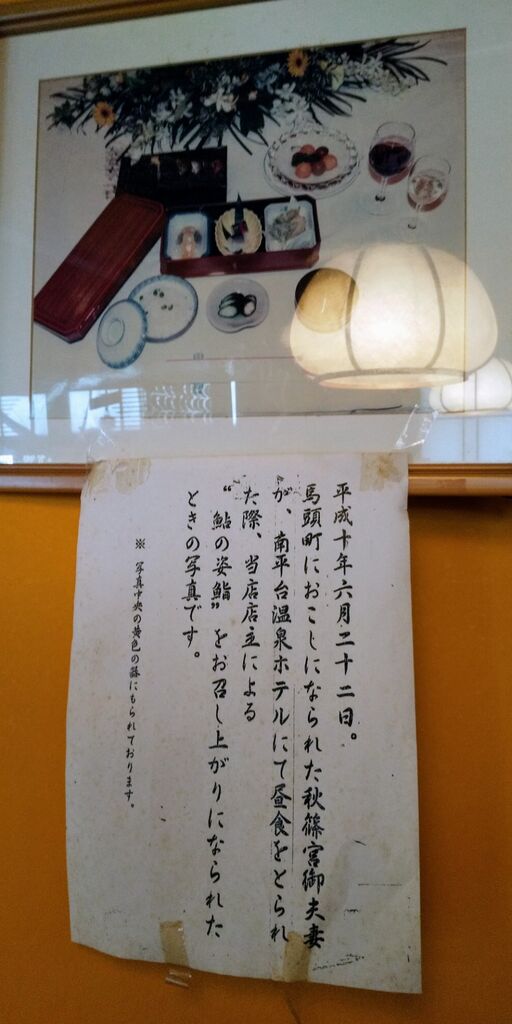 平成十年六月二十二日。
馬頭町におこしになられた秋篠宮御夫妻
が、南平台温泉ホテルにて昼食をとられ
た際、当店店主による
“鮎の姿鮨”をお召し上がりになられた
ときの写真です。
※ 写真中央の黄色の籐にもられております。